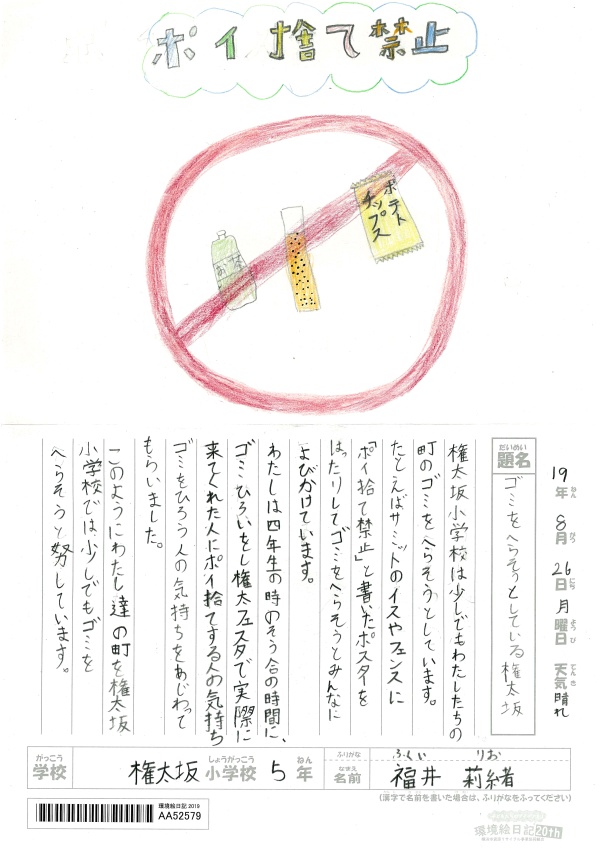 ポイ捨て禁止
お茶
ポテト
チップス
19年 8月 26日 月曜日 天気 晴れ
ねん がつ にち ようび てんき
だいめい
題名
ゴミをへらそうとしている権太坂
権太坂小学校は少しでもわたしたちの
町のゴミをへらそうとしています。
たとえばサミットのイスやフェンスに
「ポイ捨て禁止」と書いたポスターを
はったりしてゴミをへらそうとみんなに
よびかけています。
わたしは四年生の時のそう合の時間に、
ゴミひろいをし権太フェスタで実際に
来てくれた人にポイ捨てする人の気持ち
ゴミをひろう人の気持ちをあじわって
もらいました。
このようにわたし達の町を権太坂
小学校では少しでもゴミを
へらそうと努しています。
がっこう しょうがっこう ねん
学校 権太坂 小学校 5 年
ふりがな ふくい りお
なまえ
名前 福井 莉緒
(漢字で名前を書いた場合は、ふりがなをふってください)
環境絵日記 2019
AA52579
環境絵日記20th